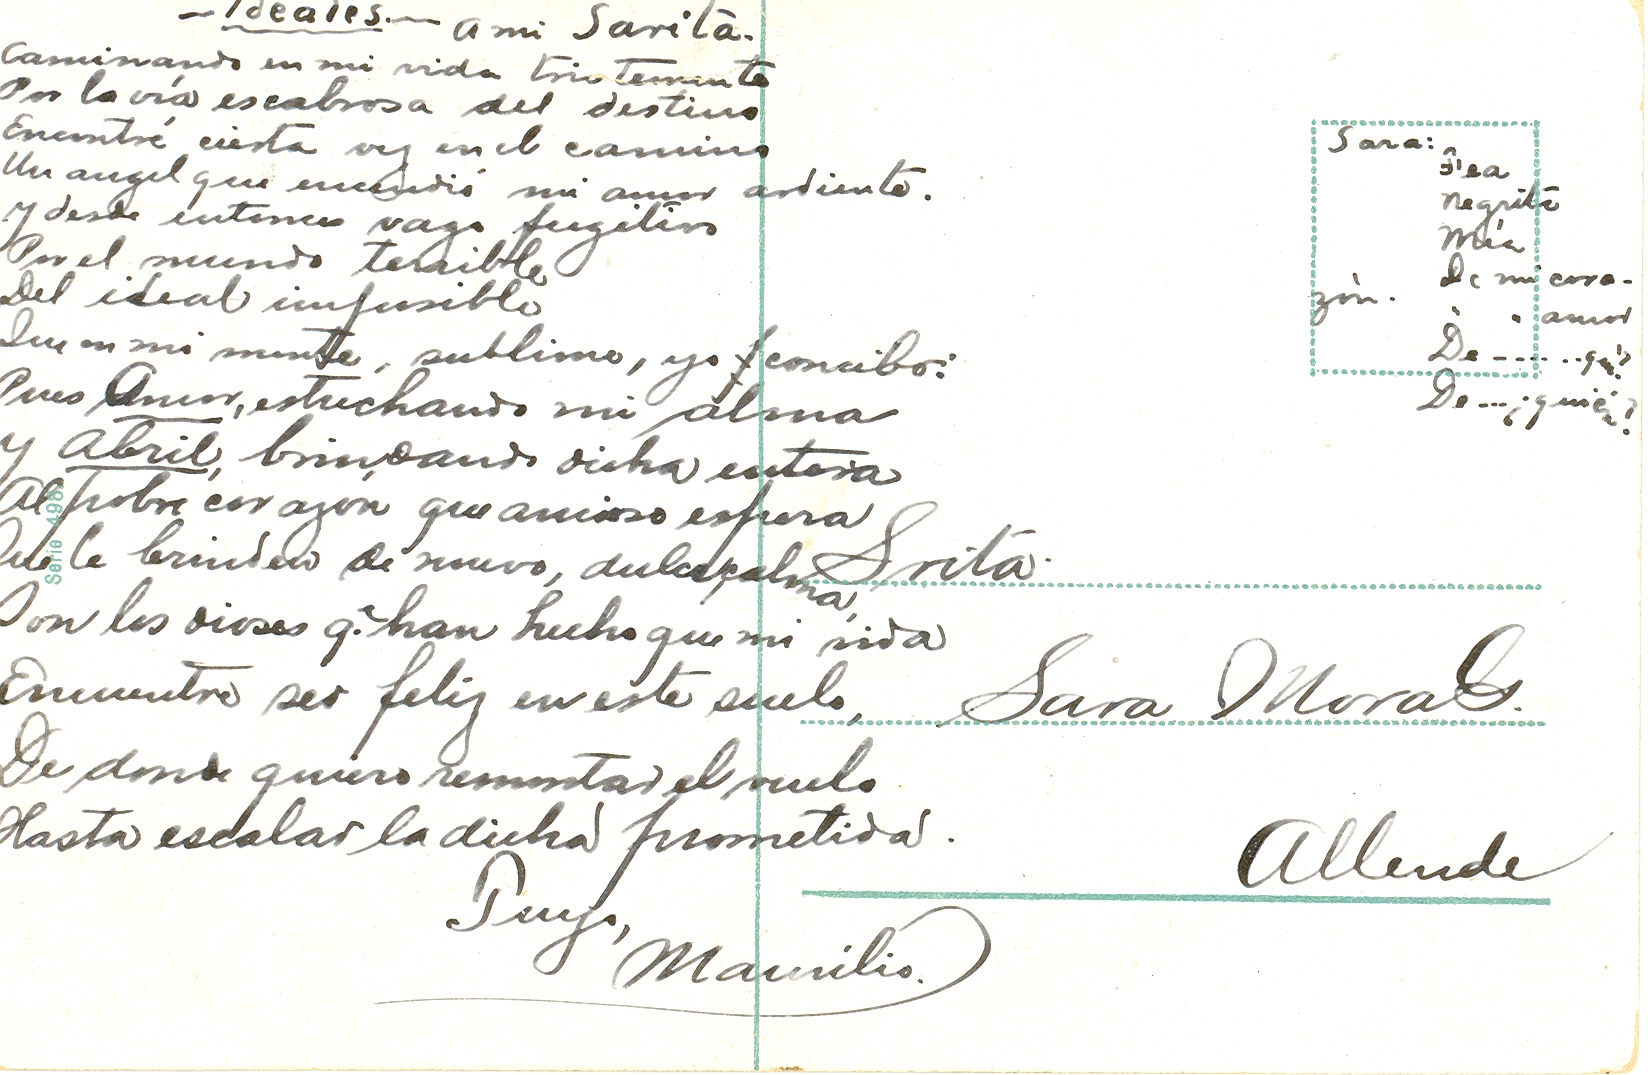 — Ideales. — A mi Sarita.
Caminando en mi vida tristemente
Por la vía escabrosa del destino
Encontré cierta vez en el camino
Un angel que encendió mi amor ardiente.
Y desde entonces vago fugitivo
Por el mundo terrible
Del ideal imposible
Que en mi mente, sublime, yo concibo:
Pues Amor, estrechando mi alma
Y Abril, brindando dicha entera
Al pobre corazón que ansioso espera
Que le brinden de nuevo, dulce calma,
Son los dioses q.e han hecho que mi vida
Encuentre ser feliz en este suelo,
De donde quiero remontar el vuelo
Hasta escalar la dicha prometida.
Tuyo,
Maurilio.
Serie 498
Sara:
Fea
Negrita
Mía
De mi cora-
zón.
" " amor
De ...... qé?
De ... ¿quién?
Srita.
Sara Mora G.
Allende